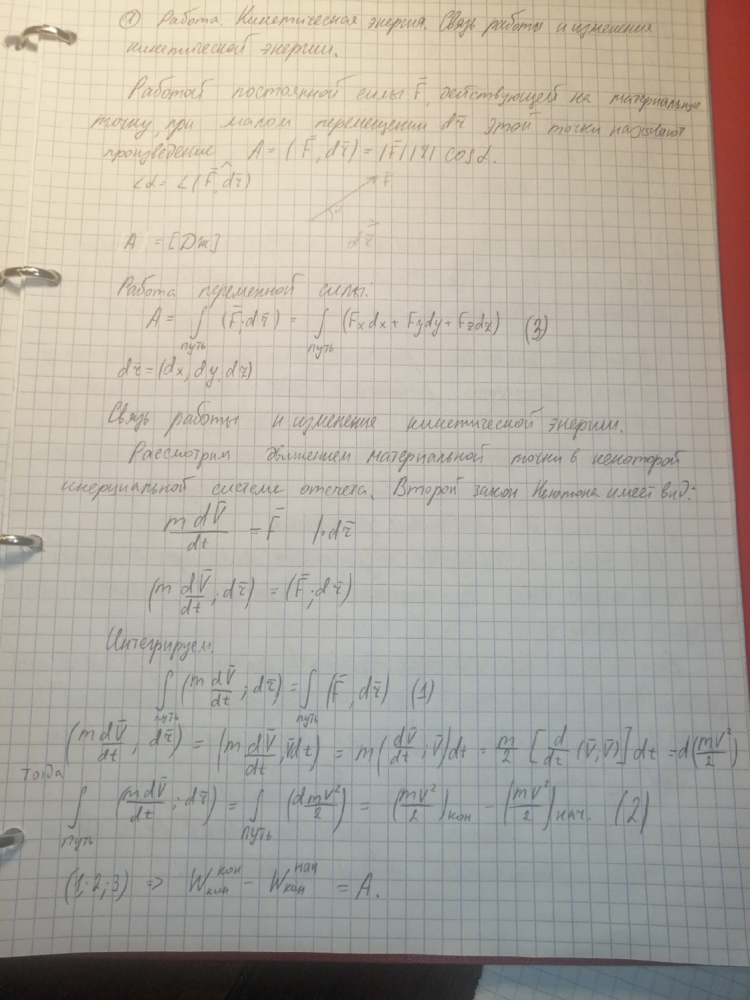 ① Работа. Кинетическая энергия. Связь работы и изменения
кинетической энергии.
Работой постоянной силы F̄, действующей на материальную
точку, при малом перемещении dr̄ этой точки называют
произведение A = (F̄, dr̄) = |F̄||r̄| cosα.
∠α = ∠(F̄,^dr̄)
F̄
α
dr̄
A = [Дж]
Работа переменной силы.
A = ∫путь (F̄; dr̄) = ∫путь (Fx dx + Fy dy + Fz dz) (3)
dr̄ = (dx, dy, dz)
Связь работы и изменение кинетической энергии.
Рассмотрим движением материальной точки в некоторой
инерциальной системе отсчета. Второй закон Ньютона имеет вид:
m dV̄/dt = F̄ |·dr̄
(m dV̄/dt ; dr̄) = (F̄ ; dr̄)
Интегрируем.
∫путь (m dV̄/dt ; dr̄) = ∫путь (F̄, dr̄) (1)
(m dV̄/dt , dr̄) = (m dV̄/dt ; v̄dt) = m(dV̄/dt ; v̄)dt = m/2 [d/dt (v̄, v̄)] dt = d(mv²/2)
Тогда
∫путь (m dV̄/dt ; dr̄) = ∫путь (d mv²/2) = (mv²/2)кон − (mv²/2)нач. (2)
(1; 2; 3) => Wкин^кон − Wкин^нач = A.